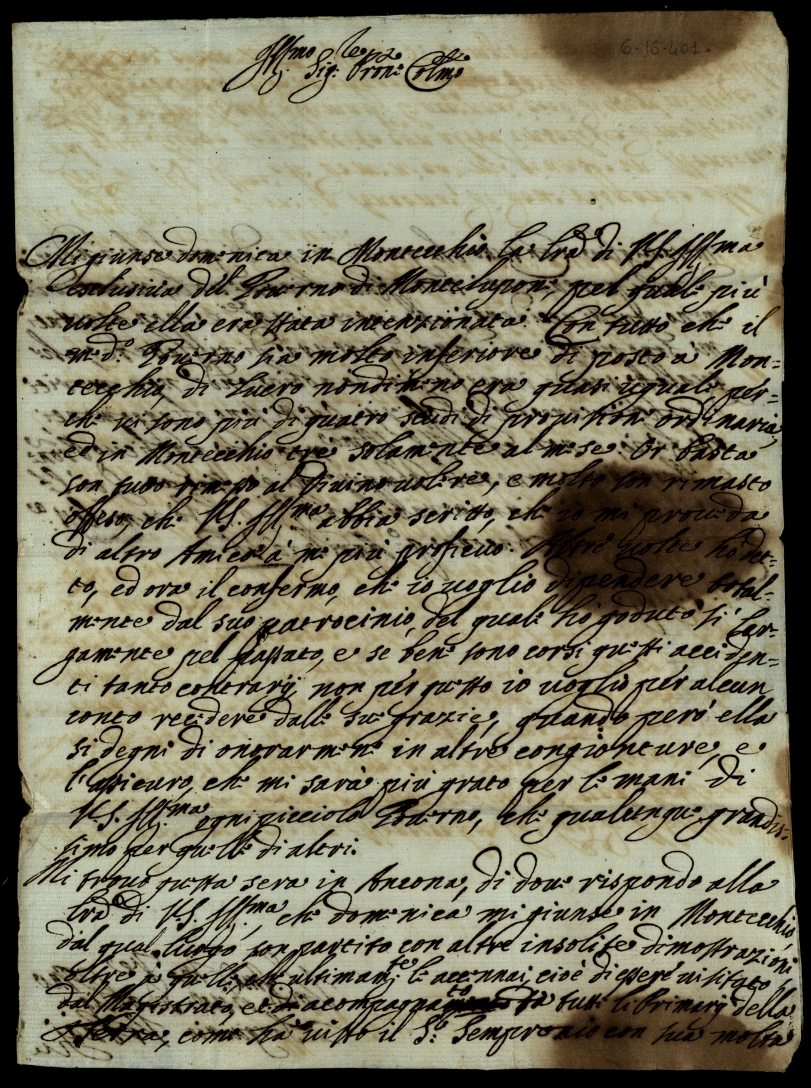 6-16-401.
Ill.mo Sig.re e Pron.e Col.mo
Mi giunse domenica in Montecchio la lr̃a di V.S. Ill.ma
esclusiva del Governo di Montelupone, pel quale più
volte ella era stata intenzionata. Con tutto che il
med.o Governo sia molto inferiore di posto a Mon=
tecchio, di lucro nondimeno era quasi uguale, per=
che vi sono più di quatro scudi di propisione ordinaria
ed in Montecchio tre solamente al mese. Or basta
son tutto rimesso al Divino volere, e molto son rimasto
offeso, che V.S. Ill.ma abbia scritto, che io mi proveda
di altro Amico à me più proficuo. Altre volte hò det=
to, ed ora il confermo, che io voglio dipendere total=
mente dal suo patrocinio, del quale hò goduto sì lar=
gamente pel passato, e se bene sono corsi questi acciden=
ti tanto contrarij, non per questo io voglio per alcun
conto recedere dalle sue grazie, quando però ella
si degni di onorarmene in altre congionture, e
l'assicuro, che mi sarà più grato per le mani di
V.S. Ill.ma ogni picciolo Governo, che qualunque grandis=
simo per quelle di altri.
Mi trovo questa sera in Ancona, di dove rispondo alla
lr̃a di V.S. Ill.ma, che domenica mi giunse in Montecchio,
dal qual luogo son partito con altre insolite dimostrazioni
oltre a quelle, che ultimam.te le accennai, cioè di essere visitato
dal Magistrato, et acompagnato da tutti li Primarij della
Terra, come hà visto il S.r Sempronio con sua molta